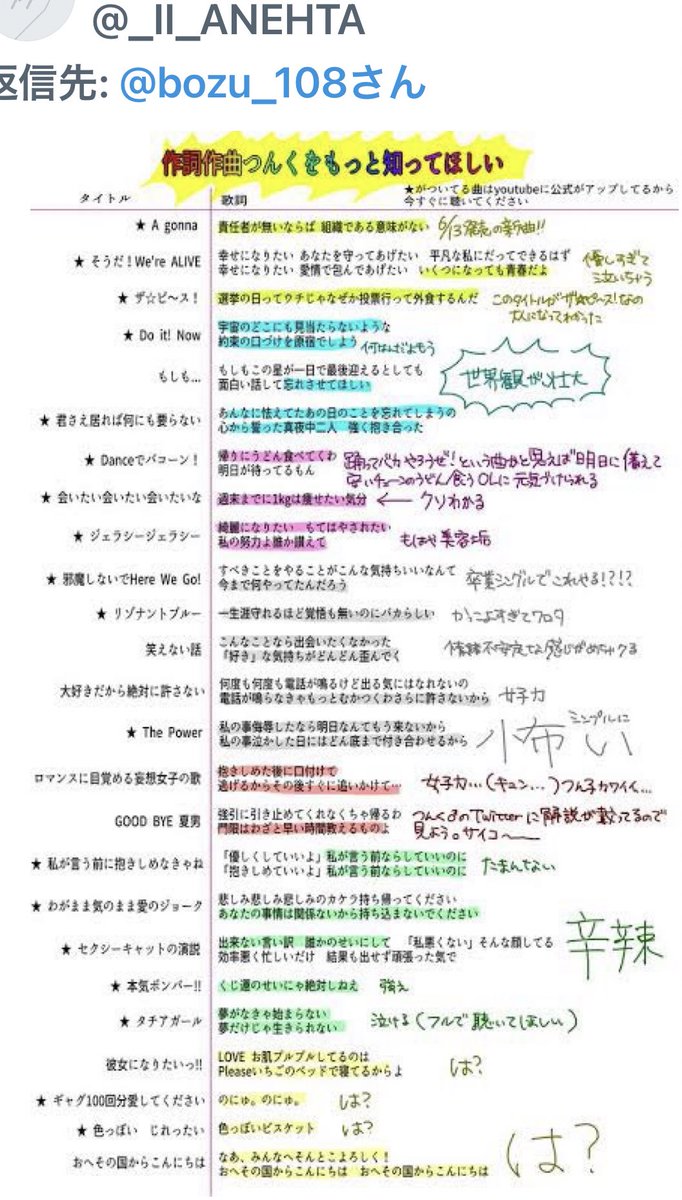 @_II_ANEHTA
返信先: @bozu_108さん
作詞作曲つんくをもっと知ってほしい
タイトル
歌詞
★がついてる曲はyoutubeに公式がアップしてるから
今すぐに聴いてください
★ A gonna
責任者が無いならば 組織である意味がない
6/13発売の新曲!!
★ そうだ！We're ALIVE
幸せになりたい あなたを守ってあげたい 平凡な私にだってできるはず
幸せになりたい 愛情で包んであげたい いくつになっても青春だよ
優しすぎて
泣いちゃう
★ ザ☆ピ〜ス！
選挙の日ってウチじゃなぜか投票行って外食するんだ
このタイトルがザ☆ピース！なの
大人になってわかった
★ Do it! Now
宇宙のどこにも見当たらないような
約束の口づけを原宿でしよう
何はんだよもう
もしも…
もしもこの星が一日で最後迎えるとしても
面白い話して忘れさせてほしい
世界観が壮大
★ 君さえ居れば何にも要らない
あんなに怯えてたあの日のことを忘れてしまうの
心から誓った真夜中二人 強く抱き合った
★ Danceでバコーン！
帰りにうどん食べてくわ
明日が待ってるもん
踊ってバカやろうぜ！という曲かと思えば明日に備えて
安いチェーンのうどん食うOLに元気づけられる
★ 会いたい会いたい会いたいな
週末までに1kgは痩せたい気分
← クソわかる
★ ジェラシージェラシー
綺麗になりたい もてはやされたい
私の努力よ誰か讃えて
もはや美容垢
★ 邪魔しないでHere We Go!
すべきことをやることがこんな気持ちいいなんて
今まで何やってたんだろう
卒業シングルでこれやる!?!?
★ リゾナントブルー
一生涯守れるほど覚悟も無いのにバカらしい
かっこよすぎてワロタ
笑えない話
こんなことなら出会いたくなかった
「好き」な気持ちがどんどん歪んでく
情緒不安定な感じがめちゃクる
大好きだから絶対に許さない
何度も何度も電話が鳴るけど出る気にはなれないの
電話が鳴らなきゃもっとむかつくわさらに許さないから
女子力
★ The Power
私の事侮辱したなら明日なんてもう来ないから
私の事泣かした日にはどん底まで付き合わせるから
シンプルに
怖い
ロマンスに目覚める妄想女子の歌
抱きしめた後に口付けて
逃げるからその後すぐに追いかけて…
女子力…(キュン…)つん子カワイイ…
GOOD BYE 夏男
強引に引き止めてくれなくちゃ帰るわ
門限はわざと早い時間教えるものよ
つんく♂のTwitterに解説が載ってるので
見よう。サイコ〜
★ 私が言う前に抱きしめなきゃね
「優しくしていいよ」私が言う前ならしていいのに
「抱きめていいよ」私が言う前ならしていいのに
たまんない
★ わがまま気のまま愛のジョーク
悲しみ悲しみ悲しみのカケラ持ち帰ってください
あなたの事情は関係ないから持ち込まないでください
★ セクシーキャットの演説
出来ない言い訳 誰かのせいにして 「私悪くない」そんな顔してる
効率悪く忙しいだけ 結果も出せず頑張った気で
辛辣
★ 本気ボンバー!!
くじ運のせいにゃ絶対しねえ
強え
★ タチアガール
夢がなきゃ始まらない
夢だけじゃ生きられない
泣ける(フルで聴いてほしい)
彼女になりたいっ!!
LOVE お肌プルプルしてるのは
Pleaseいちごのベッドで寝てるからよ
は？
★ ギャグ100回分愛してください
のにゅ。のにゅ。
は？
★ 色っぽい じれったい
色っぽいビスケット
は？
おへその国からこんにちは
なあ、みんなへそんとこよろしく！
おへその国からこんにちは おへその国からこんにちは
は？